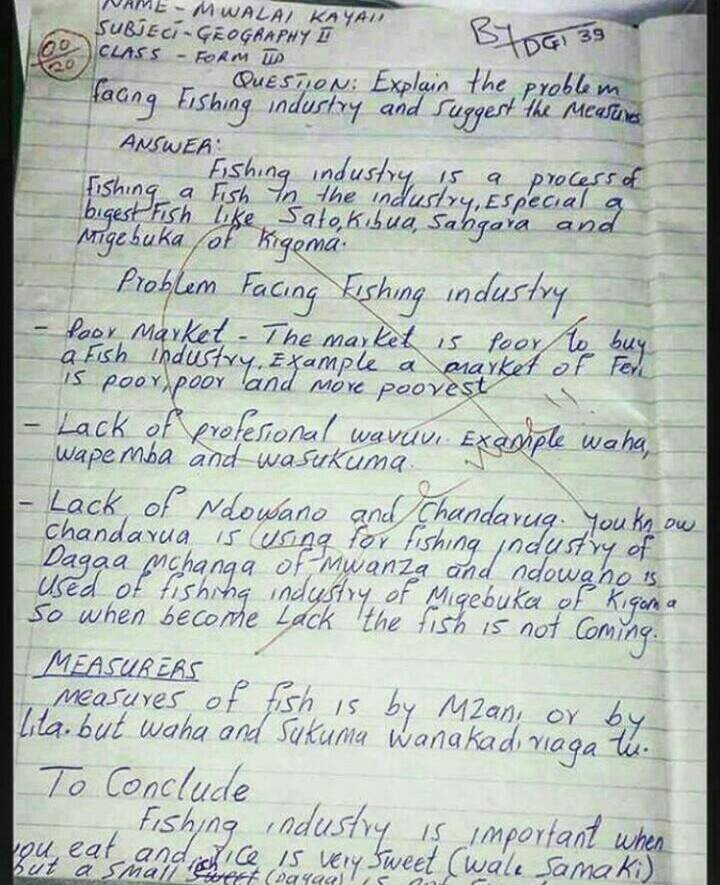 NAME - MWALAI KAYAII
SUBJECT - GEOGRAPHY II
By DGI 39
00/20
CLASS - FORM IID
QUESTION: Explain the problem
facing Fishing industry and Suggest the Measures
ANSWER:
Fishing industry is a process of
fishing a Fish in the industry, Especial a
bigest Fish like Sato, Kibua, Sangara and
Migebuka of Kigoma.
Problem Facing Fishing industry
- Poor Market - The market is Poor to buy
a Fish industry. Example a market of Feri
is poor, poor and more poorest
- Lack of profesional wavuvi. Example waha,
wapemba and wasukuma.
- Lack of Ndowano and Chandarua. You know
chandarua is using for fishing industry of
Dagaa mchanga of Mwanza and ndowano is
used of fishing industry of Migebuka of Kigoma
So when become Lack the fish is not Coming.
MEASURERS
Measures of fish is by Mzani or by
Lita. but waha and Sukuma wanakadiriaga tu.
To Conclude
Fishing industry is important when
you eat and rice is very sweet (wale Samaki)
but a small fish sweet (Dagaa) is not